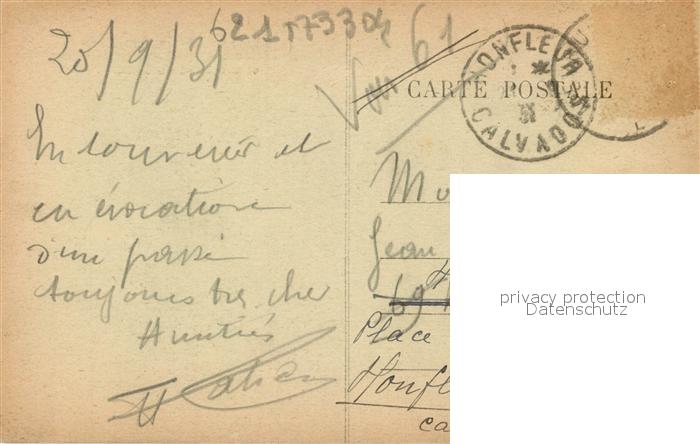 20/9/31
621 173304
Vu 61
CARTE POSTALE
HONFLEUR
CALVADOS
31
En souvenir et
en évocation
d'un passé
toujours très cher
Amitiés
M
Jean
69
Place
Honfl
Ca
privacy protection
Datenschutz